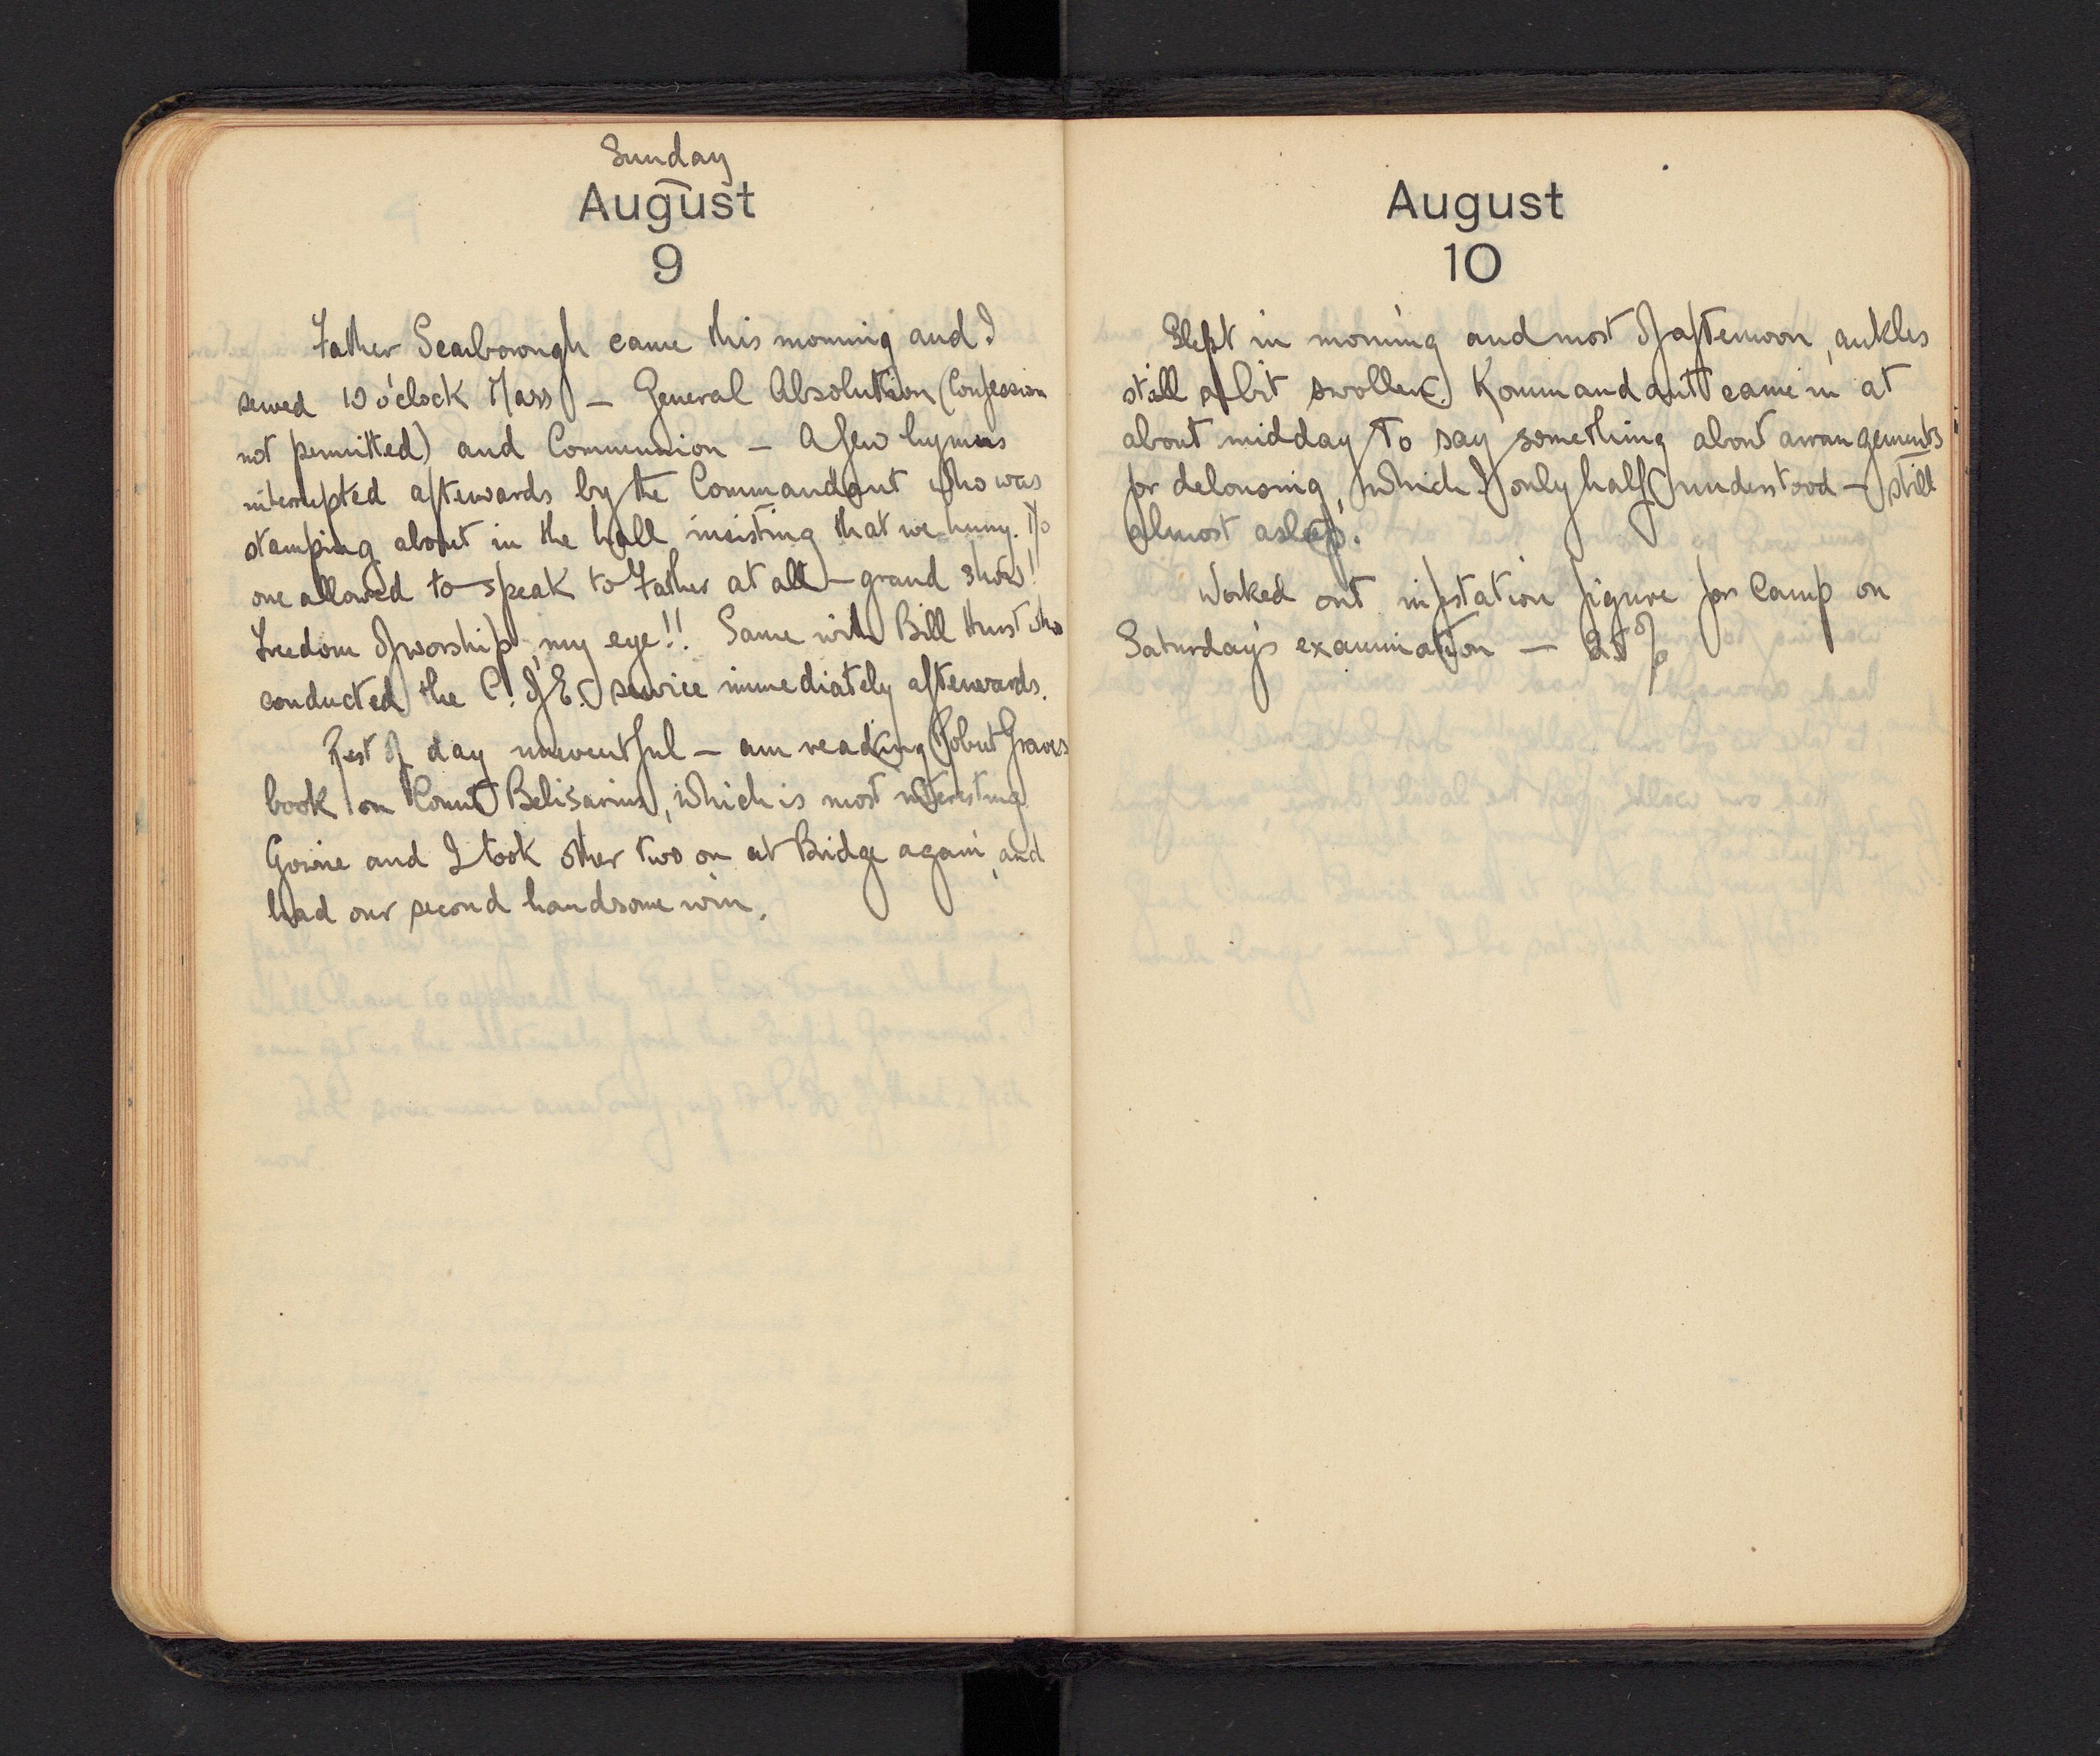 Sunday
August
9
Father Scarborough came this morning and I
served 10 o'clock Mass – General Absolution (Confession
not permitted) and Communion – A few hymns
interrupted afterwards by the Commandant who was
stamping about in the hall insisting that we hurry. No
one allowed to speak to Father at all – grand show!!
Freedom of worship, my eye!! Same with Bill Hurst who
conducted the C. of E. service immediately afterwards.
Rest of day uneventful – am reading Robert Graves
book on Count Belisarius, which is most interesting
Gowrie and I took other two on at Bridge again, and
had our second handsome win.
August
10
Slept in morning and most of afternoon, ankles
still a bit swollen. Kommandant came in at
about midday to say something about arrangements
for delousing, which I only half understood – still
almost asleep.
Worked out infestation figure for Camp on
Saturday's examination – 25%